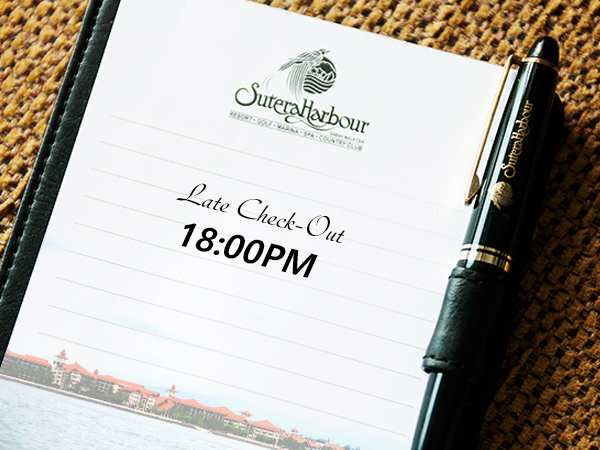 SuteraHarbour
SABAH MALAYSIA
RESORT • GOLF • MARINA • SPA • COUNTRY CLUB
Late Check-Out
18:00PM
SuteraHarbour